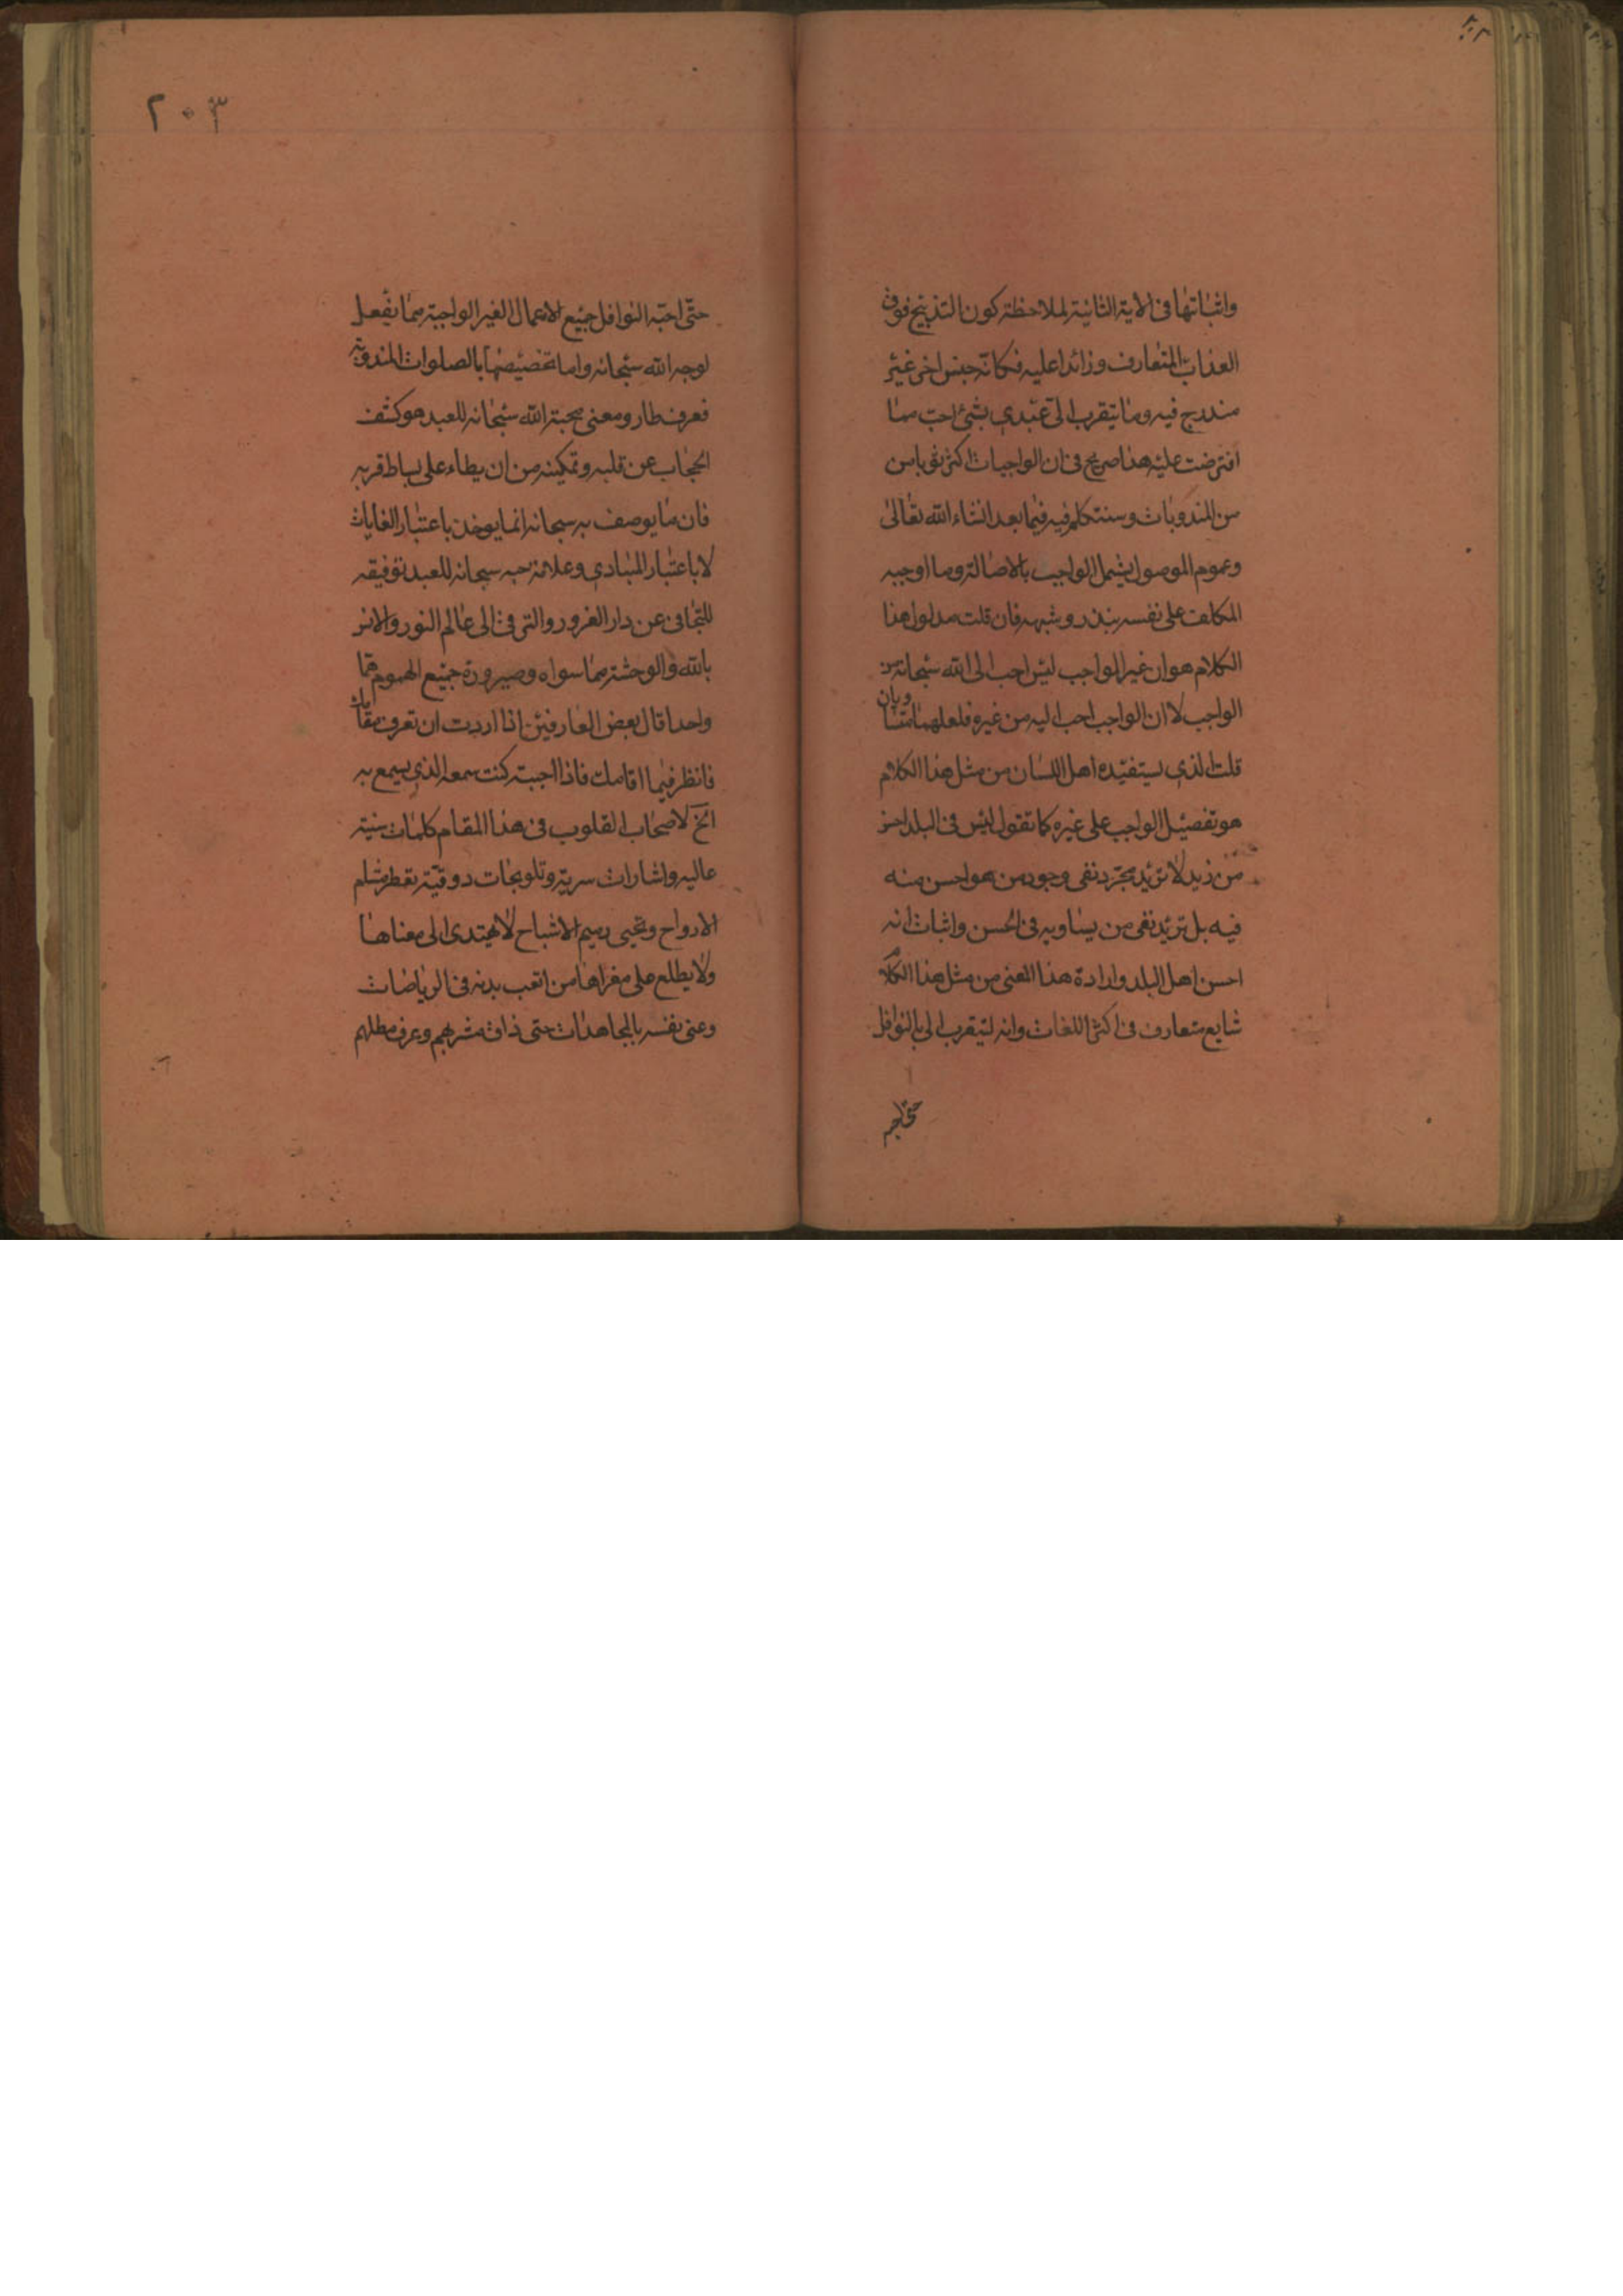 واثباتها فى الاية الثانية لملاحظة كون التذبيح فوق
العذاب المتعارف وزائدا عليه فكانه جنس اخر غير
مندرج فيه وما يتقرب الى عبدى بشئ احب مما
افترضت عليه هذا صريح فى ان الواجبات اكثر ثوابا من
من المندوبات وسنتكلم فيه فيما بعد انشاء الله تعالى
وعموم الموصول يشمل الواجب بالاصالة وما اوجبه
المكلف على نفسه بنذر وشبهه فان قلت مدلول هذا
الكلام هو ان غير الواجب ليس احب الى الله سبحانه من
الواجب لا ان الواجب احب اليه من غيره فلعلهما متساويان
قلت الذى يستفيده اهل اللسان من مثل هذا الكلام
هو تفضيل الواجب على غيره كما تقول ليس فى البلد احسن
من زيد لا تريد مجرد نفى وجود من هو احسن منه
فيه بل تريد نفى من يساويه فى الحسن واثبات انه
احسن اهل البلد وارادة هذا المعنى من مثل هذا الكلام
شايع متعارف فى اكثر اللغات وانه ليتقرب الى بالنوافل
حتى احبه
٢٠٣
حتى احبه النوافل جميع الاعمال الغير الواجبة مما يفعل
لوجه الله سبحانه واما تخصيصها بالصلوات المندوبة
فعرف طار ومعنى محبة الله سبحانه للعبد هو كشف
الحجاب عن قلبه وتمكينه من ان يطاء على بساط قربه
فان ما يوصف به سبحانه انما يوخذ باعتبار الغايات
لا باعتبار المبادى وعلامة حبه سبحانه للعبد توفيقه
للتجافى عن دار الغرور والترقى الى عالم النور والانس
بالله والوحشة مما سواه وصيرورة جميع الهموم هما
واحدا قال بعض العارفين اذا اردت ان تعرف مقامك
فانظر فيما اقامك فاذا احببته كنت سمعه الذى يسمع به
الخ لاصحاب القلوب فى هذا المقام كلمات سنية
عاليه واشارات سرية وتلويحات ذوقية تعطر مشام
الارواح وتحيى رميم الاشباح لا يهتدى الى معناها
ولا يطلع على مغزاها من اتعب بدنه فى الرياضات
وعنى نفسه بالمجاهدات حتى ذاق مشربهم وعرف مطلبهم